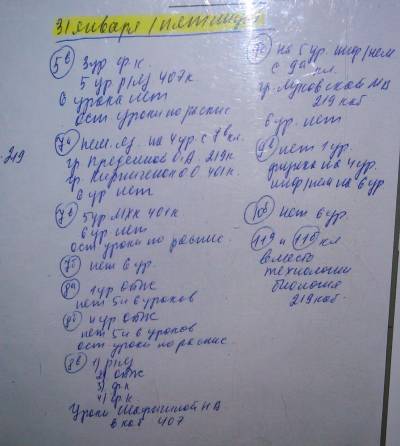 31 января / пятница
5в 3 ур ф.к.
5 ур р/яз 407 к.
6 урока нет
ост уроки по распис.
7а нем. яз. на 4 ур. с 7в кл.
гр О.А. 219 к.
гр О.О. 401 к.
6 ур нет
7б 5 ур. МХК 401 к
6 ур нет
ост уроки по распис.
7б нет 6 ур.
8а 1 ур ОБЖ
нет 5 и 6 уроков
8б 4 ур ОБЖ
нет 5 и 6 уроков
ост уроки по распис.
8в 1) р/яз
2) ОБЖ
3) ф.к
4) ф.к.
Уроки Н В
в каб 407
219
на 5 ур. инф/нем
с 9а кл.
гр. НВ
219 каб
6 ур. нет
9в нет 1 ур.
физика на 4 ур.
инф/нем на 6 ур
10б нет 6 ур.
11а и 11б кл
вместо
технологии
биология
219 каб.